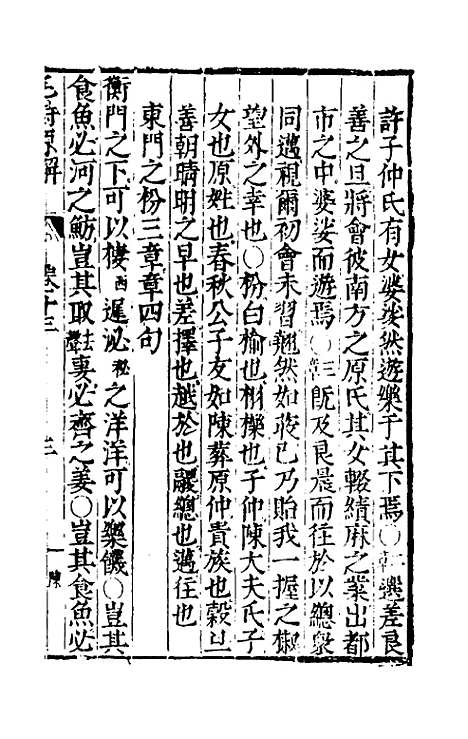 許子仲氏有女婆娑然遊樂于其下焉○二章選差良
善之旦將會彼南方之原氏其女輟績麻之業出都
市之中婆娑而遊焉○三章既及良晨而往於以總衆
同邁視爾初會未習翹然如荍已乃貽我一握之椒
望外之幸也○枌白榆也栩櫟也子仲陳大夫氏子
女也原姓也春秋公子友如陳葬原仲貴族也穀旦
善朝晴明之早也差擇也越於也鬷總也邁往也
東門之枌三章章四句
衡門之下可以棲西遲泌秘之洋洋可以樂饑○豈其
食魚必河之魴豈其取去聲妻必齊之姜○豈其食魚必
毛詩原解 卷十三 三 陳